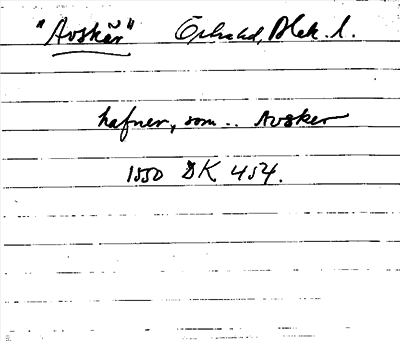 "Avskär" Östrad, Blek. l.
hafner, som .. Avsker
1550 DK 454.